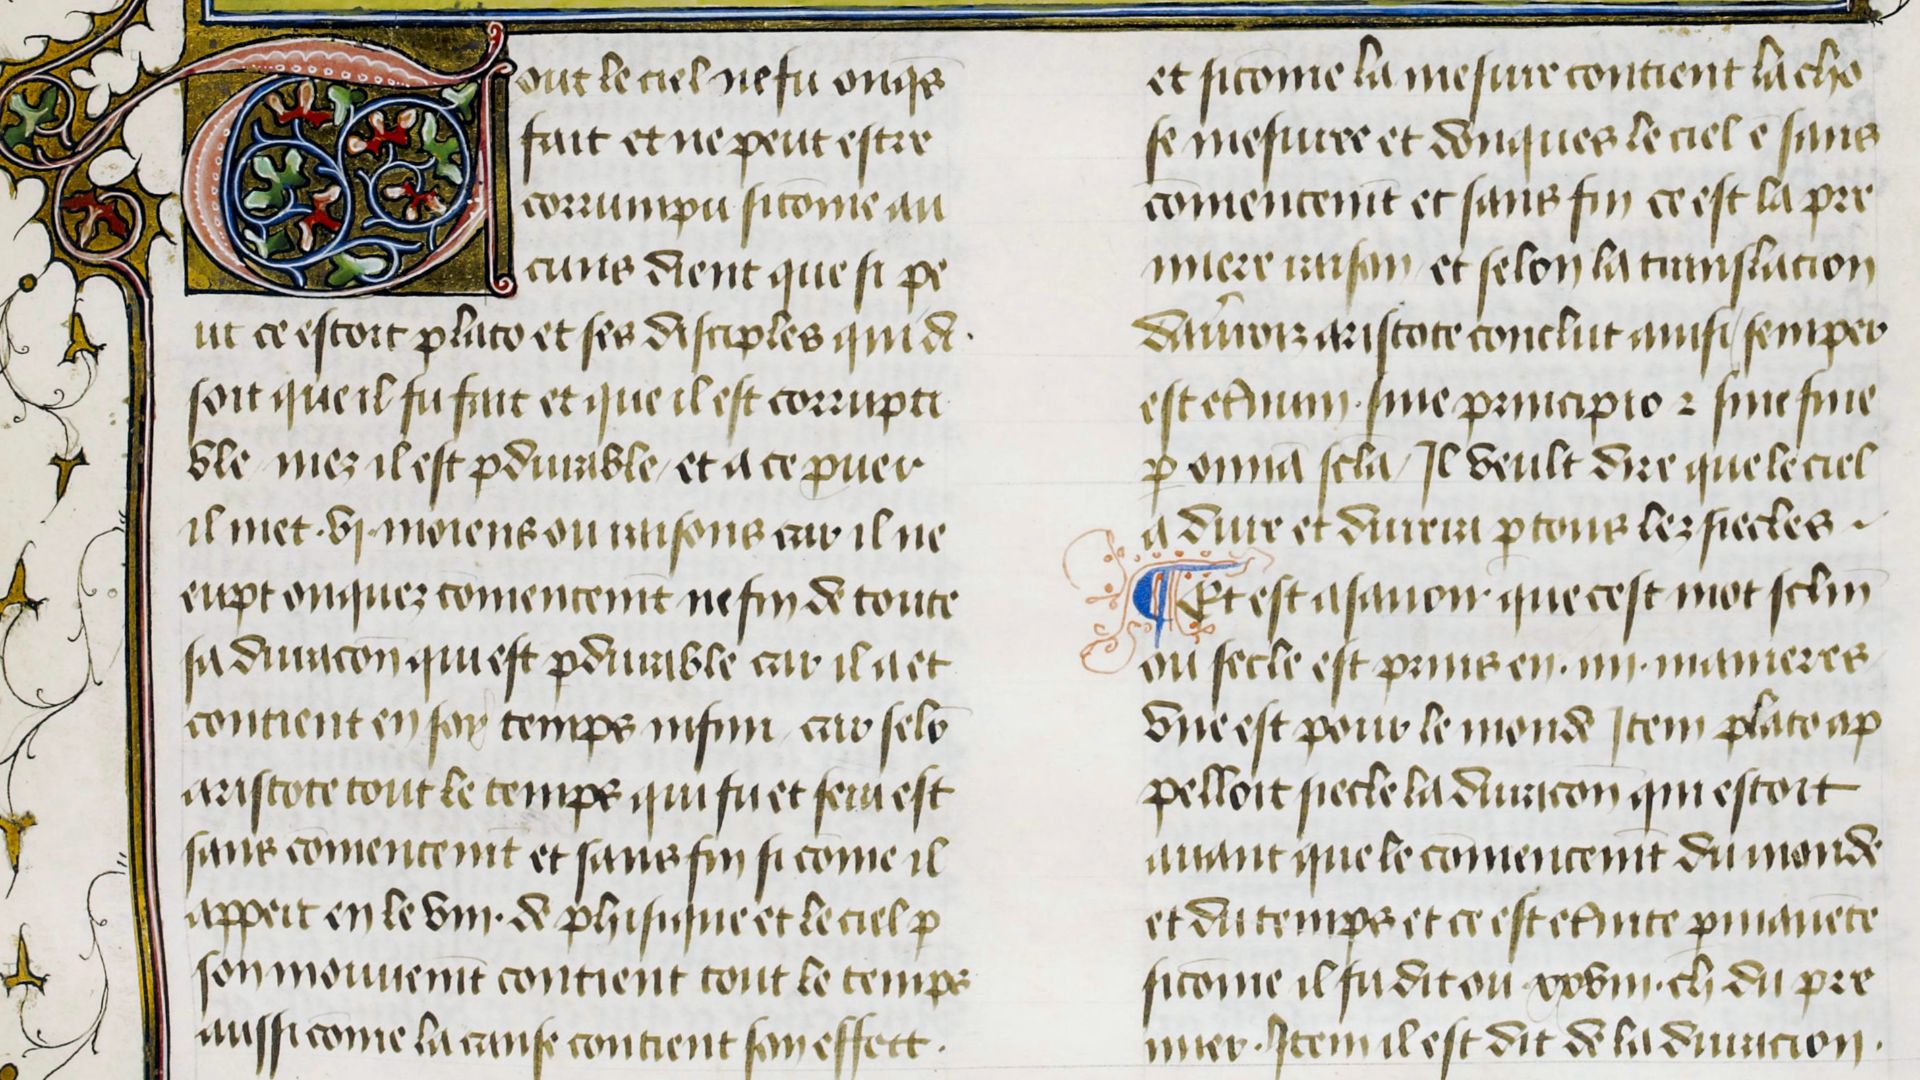 Tout le ciel ne fu onqs
fait et ne peut estre
corrumpu sicōme au
cuns dient que si pe
ut ce estoit plato et ses disciples qui di
soit que il fu fait et que il est corrupti
ble mez il est pdurable et a ce puer
il met .vi. moiens ou raisons car il ne
eupt onquez cōmencemt ne fin de toute
sa duracōn qui est pdurable car il a et
contient en soy temps infini car selō
aristote tout le temps qui fu et sera est
sans cōmencemt et sans fin si cōme il
appert en le viii. de phisique et le ciel p
son mouvemt contient tout le temps
aussi cōme la cause contient son effect.
et sicōme la mesure contient la cho
se mesuree et donques le ciel ē sans
cōmencemt et sans fin ce est la pre
miere raison et selon la translacion
daverroiz aristote conclut ainsi semper
est etnum sine principio ⁊ sine fine
p omnā scla Il veult dire que le ciel
a dure et durera p tous lez siecles
Et est asavoir que cest mot sclm
ou secle est prins en .iiii. manieres
vne est pour le monde Item plato ap
pelloit siecle la duracōn qui estoit
avant que le cōmencemt du monde
et du temps et ce est etnite pmanēte
sicōme il fu dit ou xxviii. ch du pre
mier. Item il est dit de la duracion.